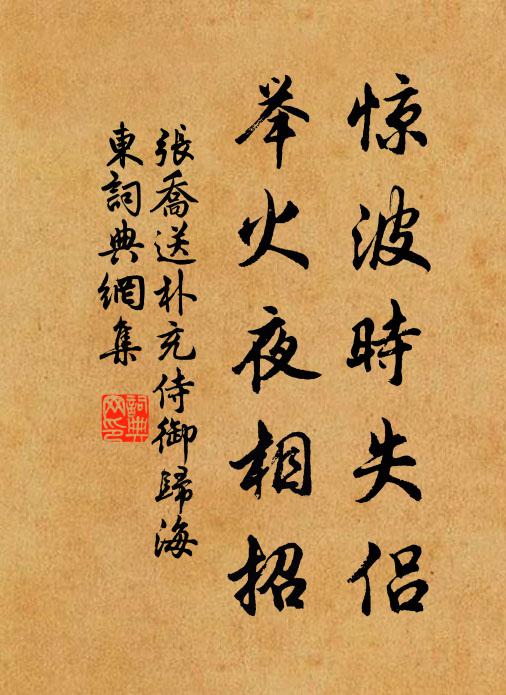 惊波時失侣
举火夜相招
張喬送朴充侍御歸海
東詞典網集
詞典
网印